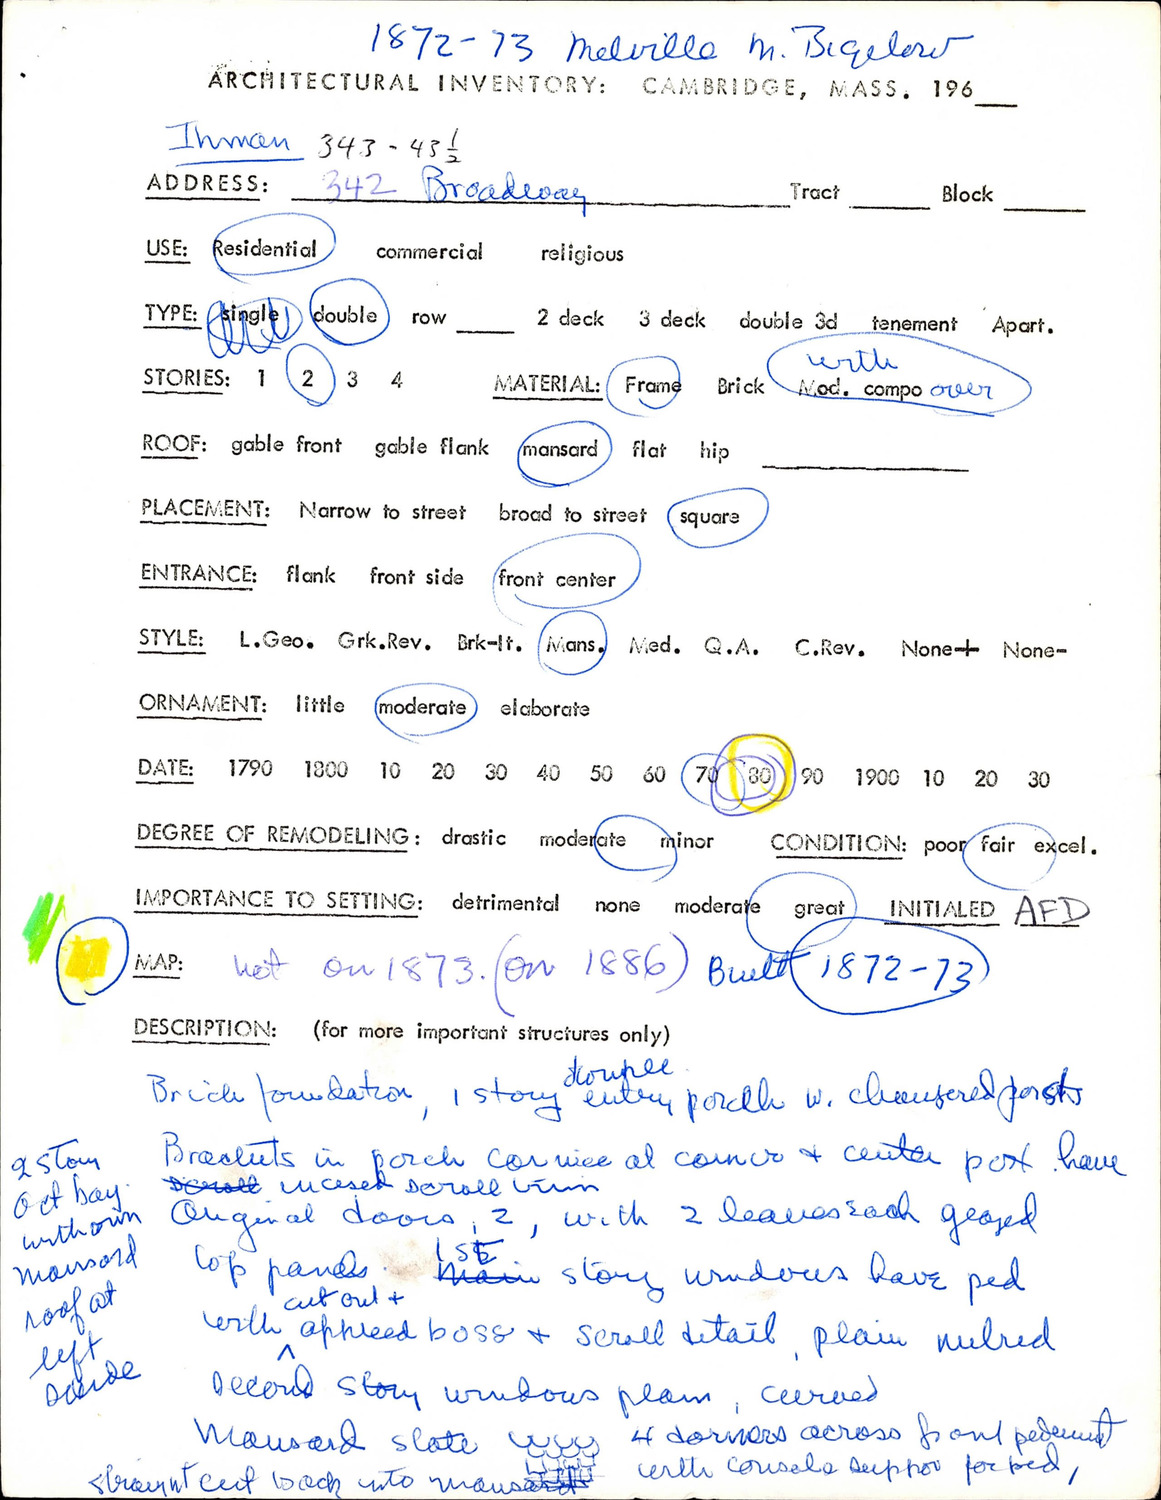 1872-73 Melville M. Bigelow
ARCHITECTURAL INVENTORY: CAMBRIDGE, MASS. 196___
Inman 343 - 43 1/2
ADDRESS: 342 Broadway Tract _____ Block _____
USE: Residential commercial religious
TYPE: single double row ____ 2 deck 3 deck double 3d tenement Apart.
with
STORIES: 1 2 3 4 MATERIAL: Frame Brick Mod. compo over
ROOF: gable front gable flank mansard flat hip ____________
PLACEMENT: Narrow to street broad to street square
ENTRANCE: flank front side front center
STYLE: L.Geo. Grk.Rev. Brk-It. Mans. Med. Q.A. C.Rev. None+ None-
ORNAMENT: little moderate elaborate
DATE: 1790 1800 10 20 30 40 50 60 70 80 90 1900 10 20 30
DEGREE OF REMODELING: drastic moderate minor CONDITION: poor fair excel.
IMPORTANCE TO SETTING: detrimental none moderate great INITIALED AFD
MAP: not on 1873. (on 1886) Built 1872-73
DESCRIPTION: (for more important structures only)
double
Brick foundation, 1 story entry porch w. chamfered posts
Brackets in porch cornice at corner + center post have
scroll incised scroll trim
Original doors, 2, with 2 leaves each glazed
top panels. 1st Main story windows have ped
cut out +
with applied boss + scroll detail, plain
second story windows plain, curved
Mansard slate 4 dormers across front pediment
straight cut back into mansard with console support for ped,
2 story
Oct bay
with own
mansard
roof at
left
side